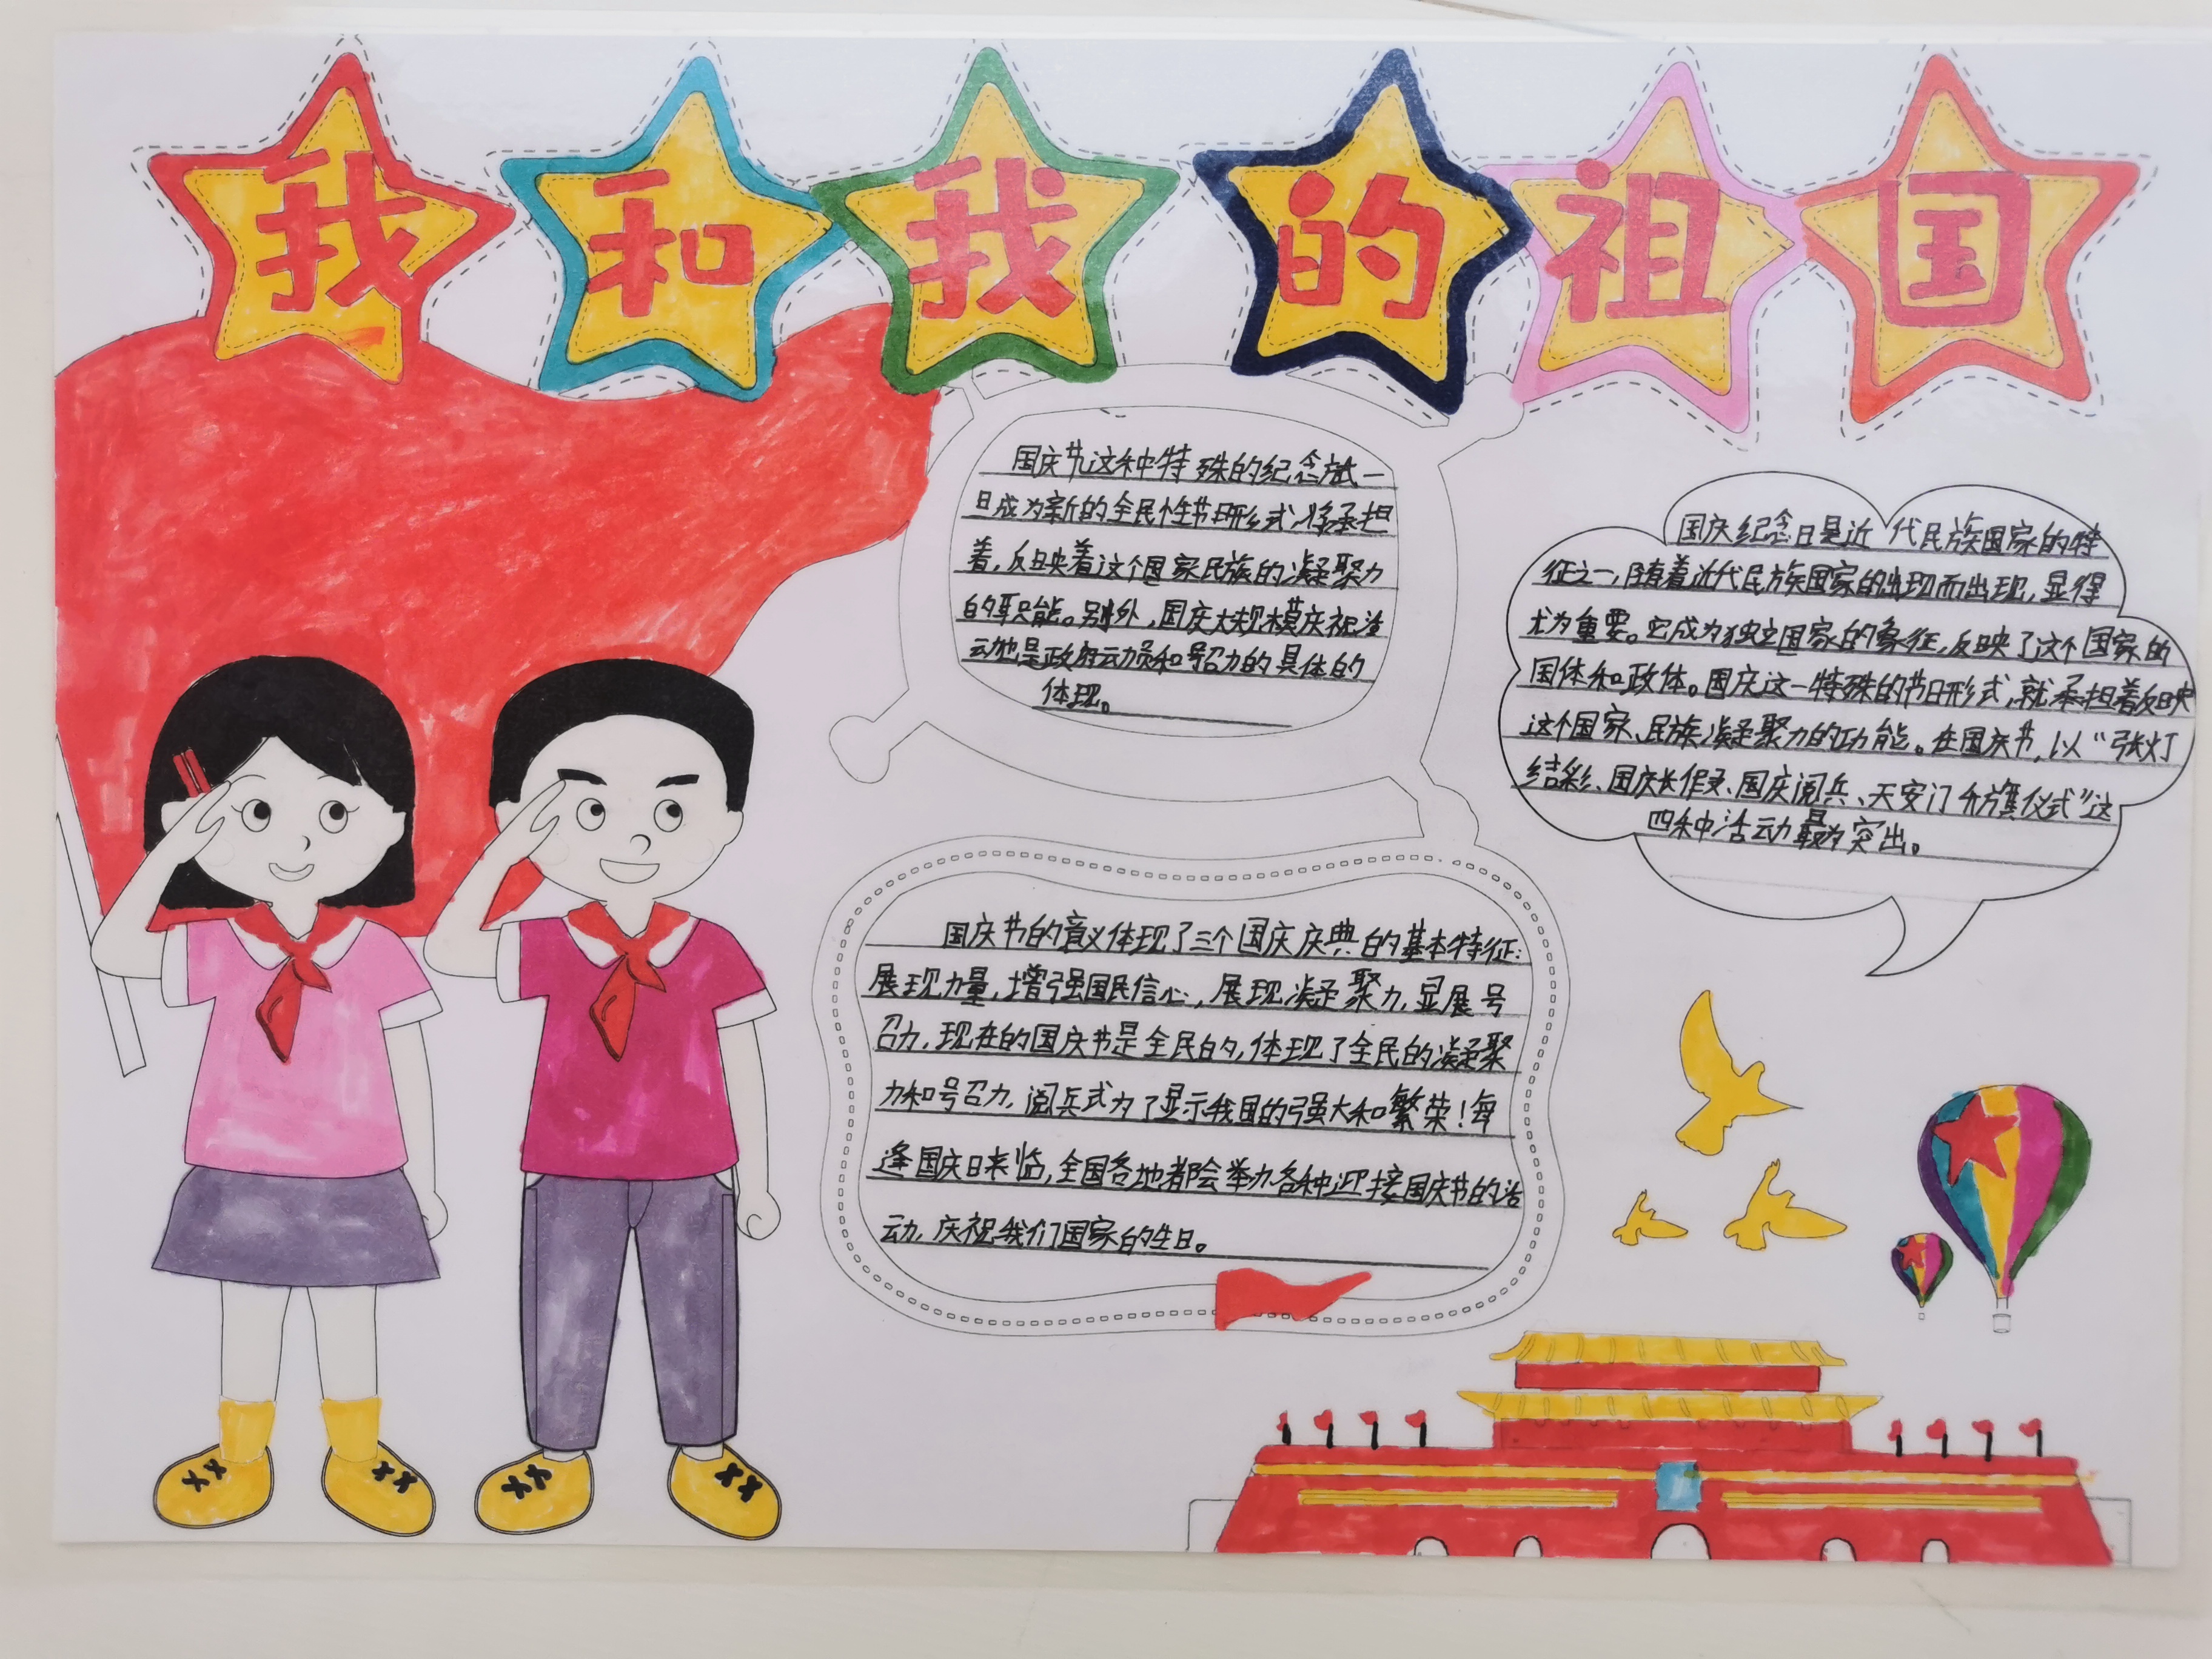 我和我的祖国
国庆节这种特殊的纪念方式一
旦成为新的全民性节日形式,将承担
着,反映着这个国家民族的凝聚力
的职能。别外,国庆大规模庆祝活
动也是政府动员和号召力的具体的
体现。
国庆纪念日是近代民族国家的特
征之一,随着近代民族国家的出现而出现,显得
尤为重要。它成为独立国家的象征,反映了这个国家的
国体和政体。国庆这一特殊的节日形式,就承担着反映
这个国家、民族凝聚力的功能。在国庆节,以“张灯
结彩、国庆长假、国庆阅兵、天安门升旗仪式”这
四种活动最为突出。
国庆节的意义体现了三个国庆庆典的基本特征:
展现力量,增强国民信心,展现凝聚力,显展号
召力,现在的国庆节是全民的,体现了全民的凝聚
力和号召力,阅兵式为了显示我国的强大和繁荣!每
逢国庆日来临,全国各地都会举办各种迎接国庆节的活
动,庆祝我们国家的生日。